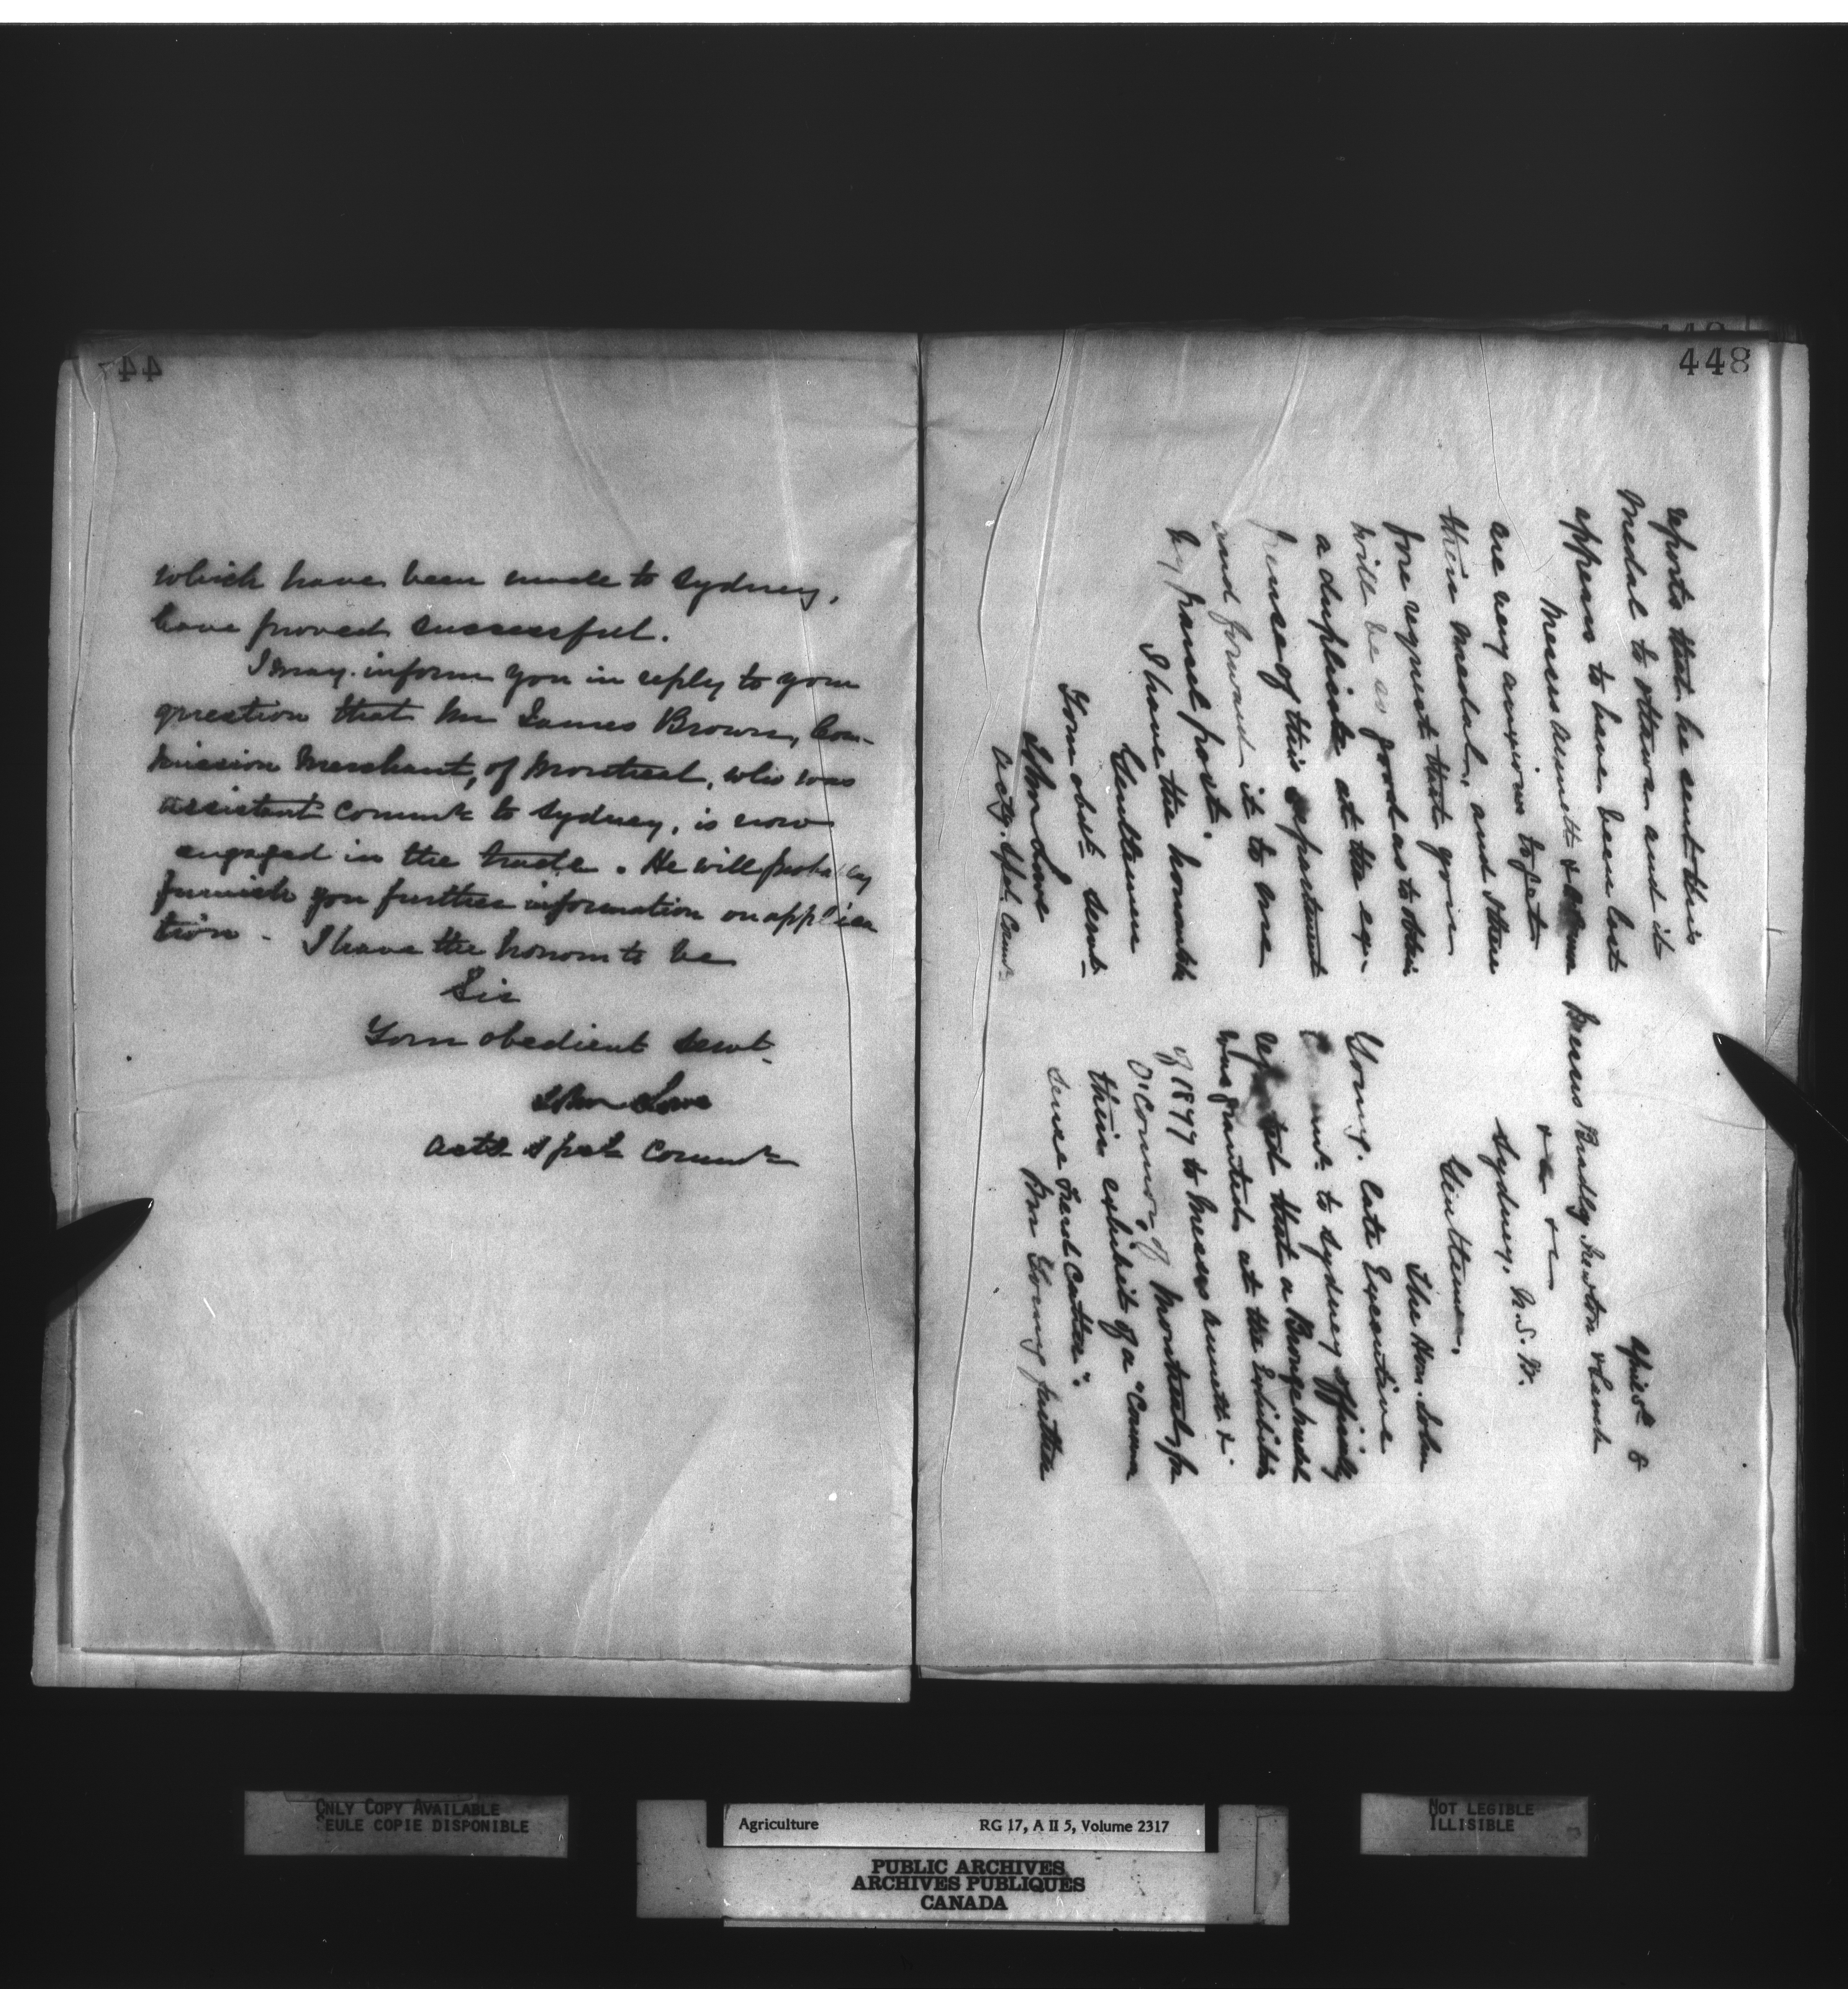 447
which have been made to Sydney,
have proved successful.
I may inform you in reply to your
question that Mr James Brown, Com-
mission Merchant, of Montreal, who was
assistant Commr to Sydney, is now
engaged in the trade. He will probably
furnish you further information on applica
tion. I have the honour to be
Sir
Your obedient servt.
John Lowe
Actg Spcl Commr
448
April 8
Messrs Bradley Newton & Lamb
&c &c
Sydney, N.S.W.
Gentlemen,
The Hon. John
Young, late Executive
to Sydney officially
reported that a Bronze Medal
was granted at the Exhibition
of 1877 to Messrs &
O'Connor, of Montreal, for
their exhibit of a "
Feed Cutter".
Mr Young further
reports that he sent this
Medal to Ottawa and it
appears to have been lost
Messrs &
are very anxious to get
their medal, and there
fore request that you
will be so good as to obtain
a duplicate at the ex-
pense of this department
and forward it to me
by parcel post.
I have the honour to be
Gentlemen
Your obedt servt.
John Lowe
Actg. Spcl. Commr
ONLY COPY AVAILABLE
SEULE COPIE DISPONIBLE
Agriculture RG 17, A II 5, Volume 2317
PUBLIC ARCHIVES
ARCHIVES PUBLIQUES
CANADA
NOT LEGIBLE
ILLISIBLE